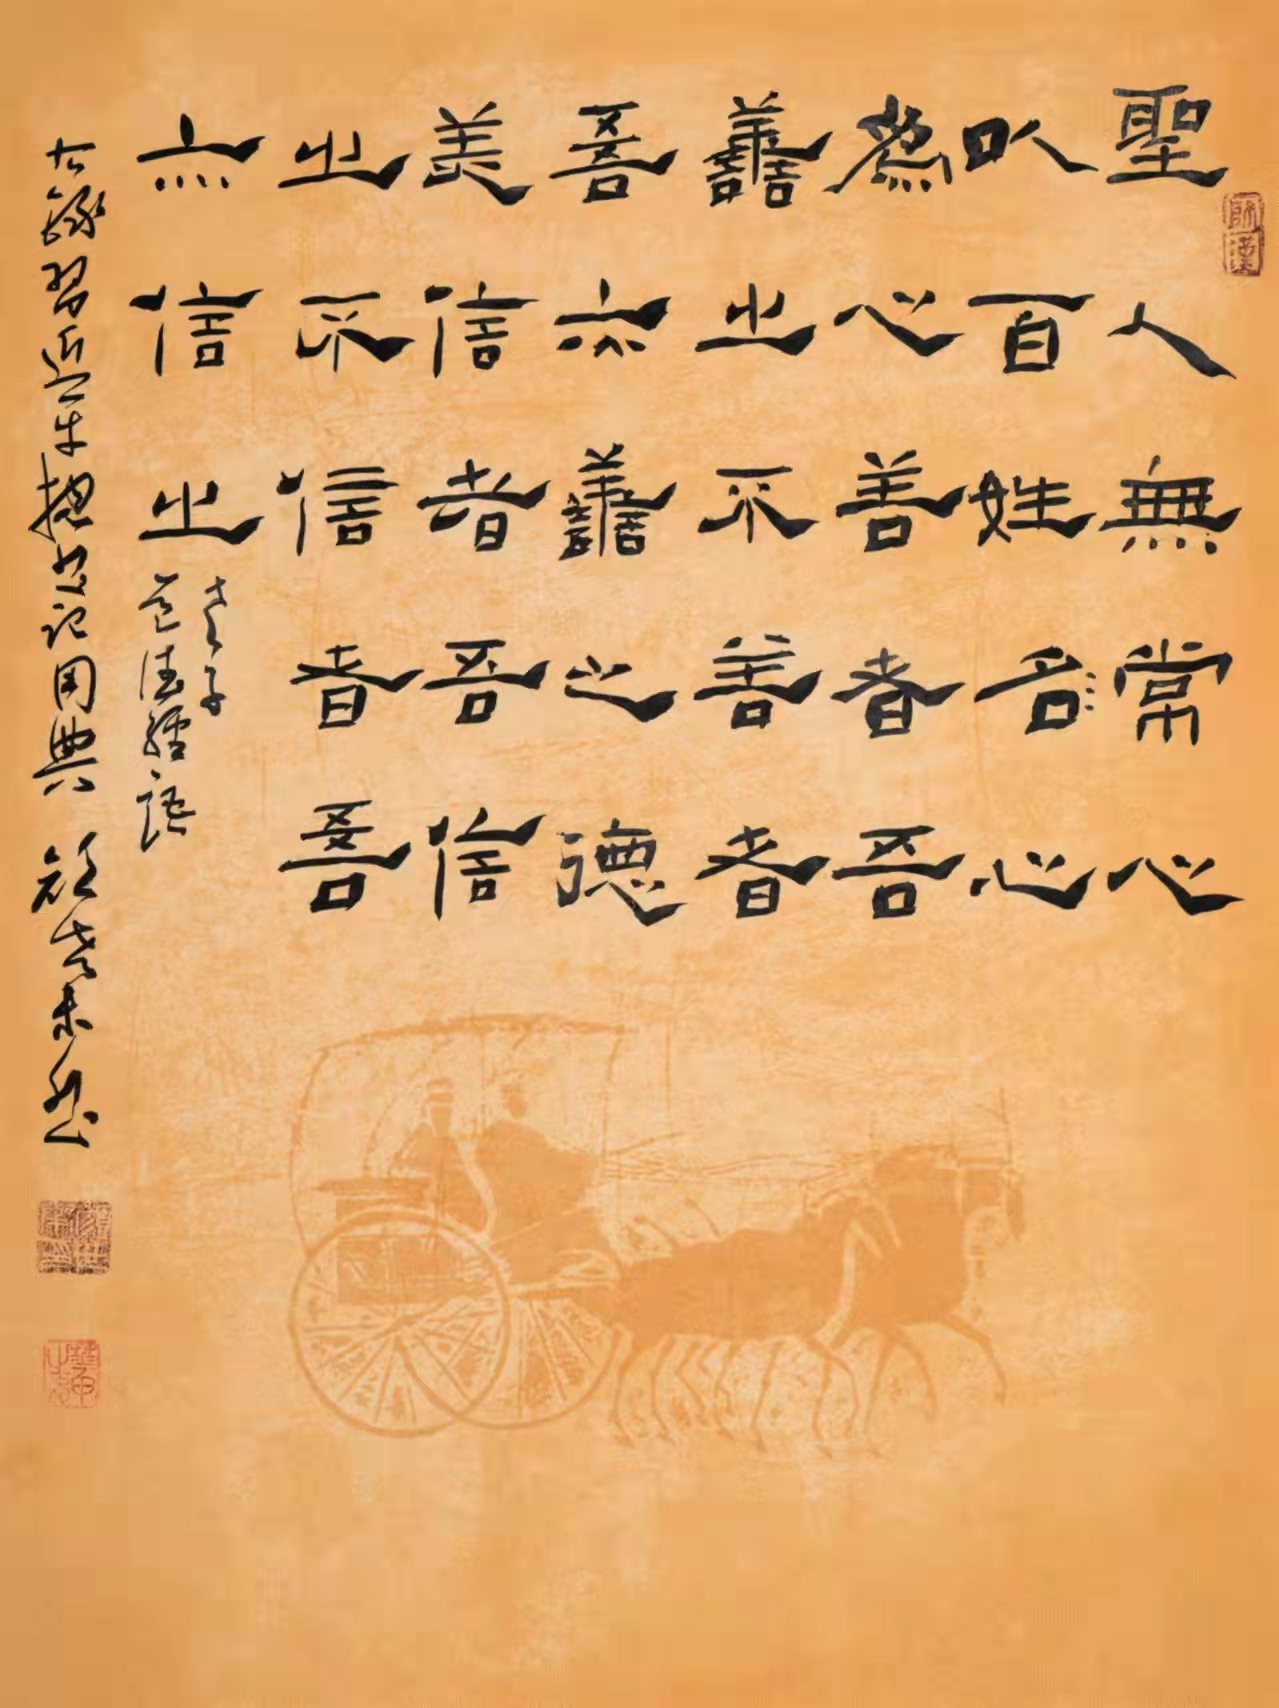 聖人無常心
以百姓名心
為心善者吾
善之不善者
吾亦善之德
美信者吾信
之不信者吾
亦信之
老子
道德經語
右錄習近平總书记用典
師漢